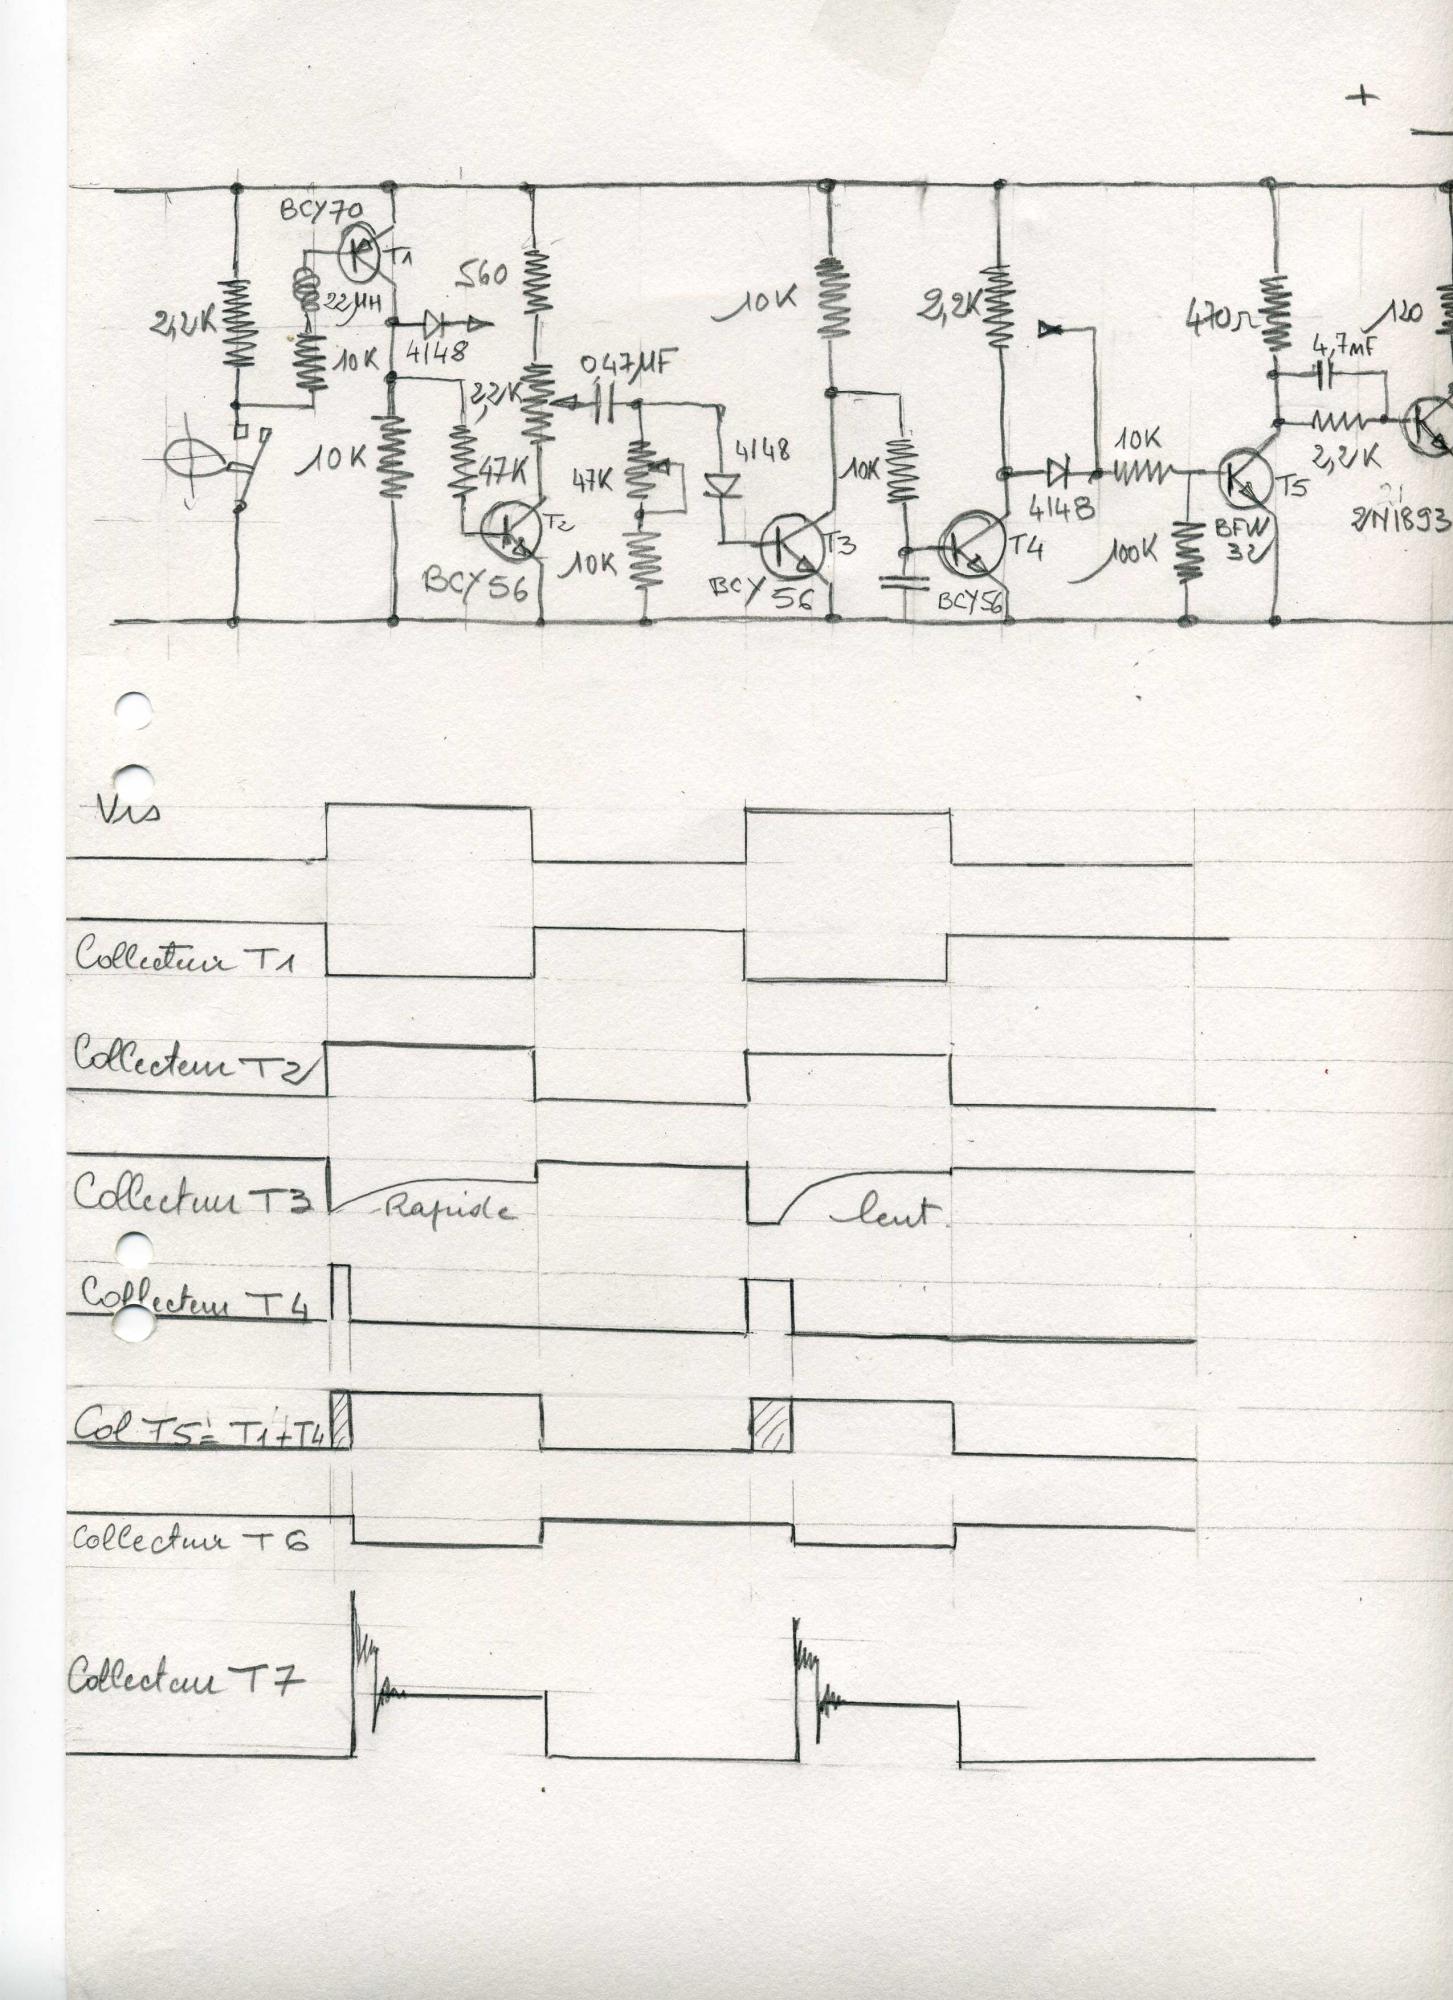 +
BCY70
T1
560
2,2K
22µH
10K
4148
10K
2,2K
0,47µF
47K
T2
BCY56
47K
10K
4148
10K
T3
BCY56
10K
2,2K
T4
BCY56
4148
10K
100K
T5
BFW
32
470Ω
4,7nF
2,2K
120
2N1893
Vis
Collecteur T1
Collecteur T2
Collecteur T3
Rapide
lent.
Collecteur T4
Col T5 = T1 + T4
Collecteur T6
Collecteur T7